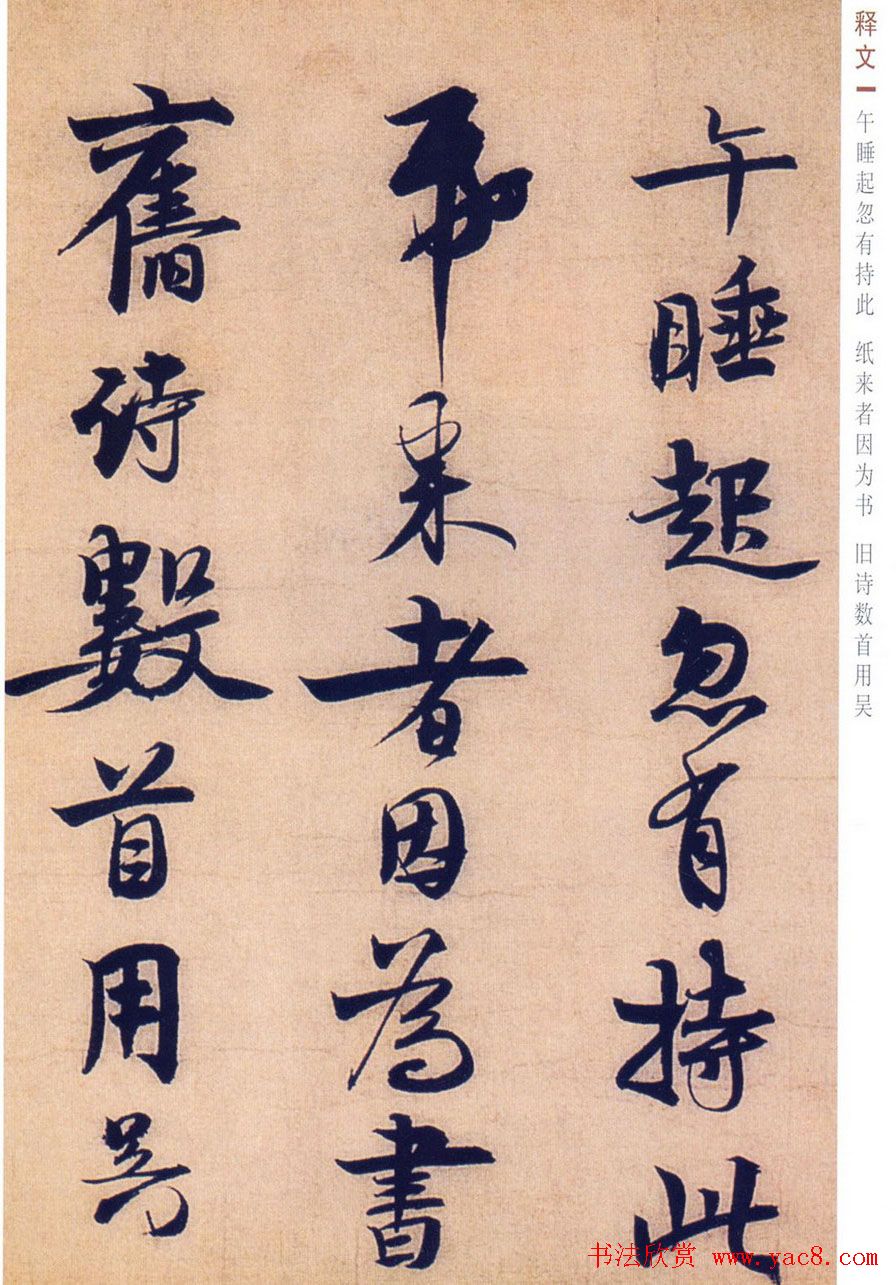 释文 午睡起忽有持此 纸来者因为书 旧诗数首用吴
午睡起忽有持此
帋来者因為書
舊詩數首用吴
书法欣赏 www.yac8.com